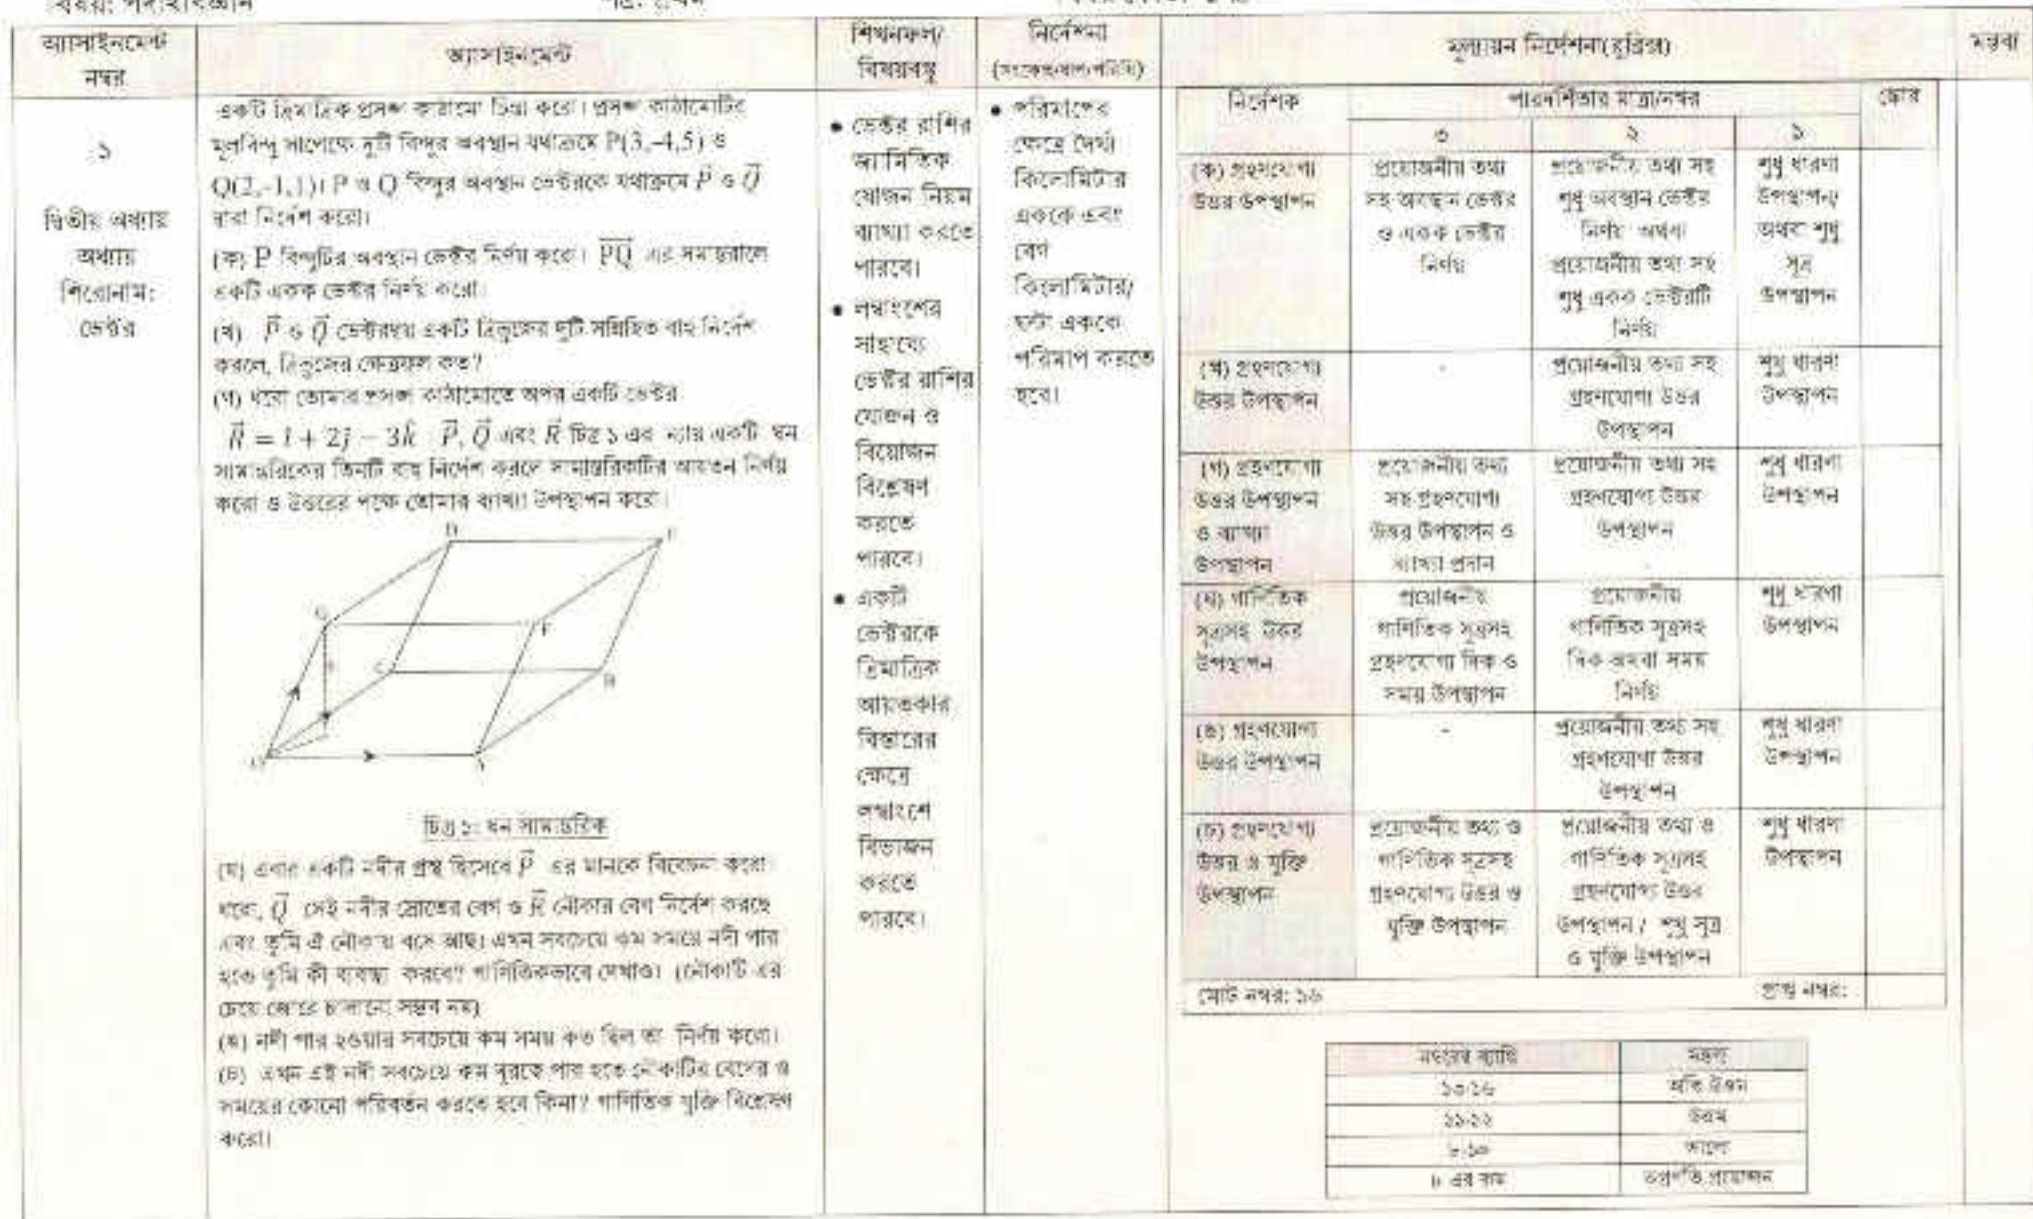 বিষয়: পদার্থবিজ্ঞান
অ্যাসাইনমেন্ট নম্বর
অ্যাসাইনমেন্ট
শিখনফল/ বিষয়বস্তু
নির্দেশনা (সংকেত/ধাপ/পরিধি)
মূল্যায়ন নির্দেশনা(রুব্রিক্স)
মন্তব্য
১
দ্বিতীয় অধ্যায়
অধ্যায়
শিরোনাম:
ভেক্টর
একটি ত্রিমাত্রিক প্রসঙ্গ কাঠামো চিন্তা করো। প্রসঙ্গ কাঠামোটির
মূলবিন্দু সাপেক্ষে দুটি বিন্দুর অবস্থান যথাক্রমে P(3,-4,5) ও
Q(2,-1,1)। P ও Q বিন্দুর অবস্থান ভেক্টরকে যথাক্রমে P⃗ ও Q⃗
দ্বারা নির্দেশ করো।
(ক) P বিন্দুটির অবস্থান ভেক্টর নির্ণয় করো। PQ⃗ এর সমান্তরালে
একটি একক ভেক্টর নির্ণয় করো।
(খ) P⃗ ও Q⃗ ভেক্টরদ্বয় একটি ত্রিভুজের দুটি সন্নিহিত বাহু নির্দেশ
করলে, ত্রিভুজের ক্ষেত্রফল কত?
(গ) ধরো তোমার প্রসঙ্গ কাঠামোতে অপর একটি ভেক্টর
R⃗ = î + 2ĵ − 3k̂ P⃗, Q⃗ এবং R⃗ চিত্র ১ এর ন্যায় একটি ঘন
সামান্তরিকের তিনটি বাহু নির্দেশ করলে সামান্তরিকটির আয়তন নির্ণয়
করো ও উত্তরের পক্ষে তোমার ব্যাখ্যা উপস্থাপন করো।
D
G
F
C
B
চিত্র ১: ঘন সামান্তরিক
(ঘ) এবার একটি নদীর প্রস্থ হিসেবে P⃗ এর মানকে বিবেচনা করো।
ধরো, Q⃗ সেই নদীর স্রোতের বেগ ও R⃗ নৌকার বেগ নির্দেশ করছে
এবং তুমি ঐ নৌকায় বসে আছ। এখন সবচেয়ে কম সময়ে নদী পার
হতে তুমি কী ব্যবস্থা করবে? গাণিতিকভাবে দেখাও। (নৌকাটি এর
চেয়ে জোরে চালানো সম্ভব নয়)
(ঙ) নদী পার হওয়ার সবচেয়ে কম সময় কত ছিল তা নির্ণয় করো।
(চ) এখন এই নদী সবচেয়ে কম দূরত্বে পার হতে নৌকাটির বেগের ও
সময়ের কোনো পরিবর্তন করতে হবে কিনা? গাণিতিক যুক্তি বিশ্লেষণ
করো।
• ভেক্টর রাশির
জ্যামিতিক
যোজন নিয়ম
ব্যাখ্যা করতে
পারবে।
• লম্বাংশের
সাহায্যে
ভেক্টর রাশির
যোজন ও
বিয়োজন
বিশ্লেষণ
করতে
পারবে।
• একটি
ভেক্টরকে
ত্রিমাত্রিক
আয়তকার
বিস্তারের
ক্ষেত্রে
লম্বাংশে
বিভাজন
করতে
পারবে।
• পরিমাপের
ক্ষেত্রে দৈর্ঘ্য
কিলোমিটার
এককে এবং
বেগ
কিলোমিটার/
ঘন্টা এককে
পরিমাপ করতে
হবে।
নির্দেশক
পারদর্শিতার মাত্রা/নম্বর
স্কোর
৩
২
১
(ক) গ্রহণযোগ্য
উত্তর উপস্থাপন
প্রয়োজনীয় তথ্য
সহ অবস্থান ভেক্টর
ও একক ভেক্টর
নির্ণয়
প্রয়োজনীয় তথ্য সহ
শুধু অবস্থান ভেক্টর
নির্ণয় অথবা
প্রয়োজনীয় তথ্য সহ
শুধু একক ভেক্টরটি
নির্ণয়
শুধু ধারণা
উপস্থাপন/
অথবা শুধু
সূত্র
উপস্থাপন
(খ) গ্রহণযোগ্য
উত্তর উপস্থাপন
-
প্রয়োজনীয় তথ্য সহ
গ্রহণযোগ্য উত্তর
উপস্থাপন
শুধু ধারণা
উপস্থাপন
(গ) গ্রহণযোগ্য
উত্তর উপস্থাপন
ও ব্যাখ্যা
উপস্থাপন
প্রয়োজনীয় তথ্য
সহ গ্রহণযোগ্য
উত্তর উপস্থাপন ও
ব্যাখ্যা প্রদান
প্রয়োজনীয় তথ্য সহ
গ্রহণযোগ্য উত্তর
উপস্থাপন
শুধু ধারণা
উপস্থাপন
(ঘ) গাণিতিক
সূত্রসহ উত্তর
উপস্থাপন
প্রয়োজনীয়
গাণিতিক সূত্রসহ
গ্রহণযোগ্য দিক ও
সময় উপস্থাপন
প্রয়োজনীয়
গাণিতিক সূত্রসহ
দিক অথবা সময়
নির্ণয়
শুধু ধারণা
উপস্থাপন
(ঙ) গ্রহণযোগ্য
উত্তর উপস্থাপন
-
প্রয়োজনীয় তথ্য সহ
গ্রহণযোগ্য উত্তর
উপস্থাপন
শুধু ধারণা
উপস্থাপন
(চ) গ্রহণযোগ্য
উত্তর ও যুক্তি
উপস্থাপন
প্রয়োজনীয় তথ্য ও
গাণিতিক সূত্রসহ
গ্রহণযোগ্য উত্তর ও
যুক্তি উপস্থাপন
প্রয়োজনীয় তথ্য ও
গাণিতিক সূত্রসহ
গ্রহণযোগ্য উত্তর
উপস্থাপন / শুধু সূত্র
ও যুক্তি উপস্থাপন
শুধু ধারণা
উপস্থাপন
মোট নম্বর: ১৬
প্রাপ্ত নম্বর:
নম্বরের ব্যাপ্তি
মন্তব্য
১৩-১৬
অতি উত্তম
১১-১২
উত্তম
৮-১০
ভালো
৮ এর কম
অগ্রগতি প্রয়োজন